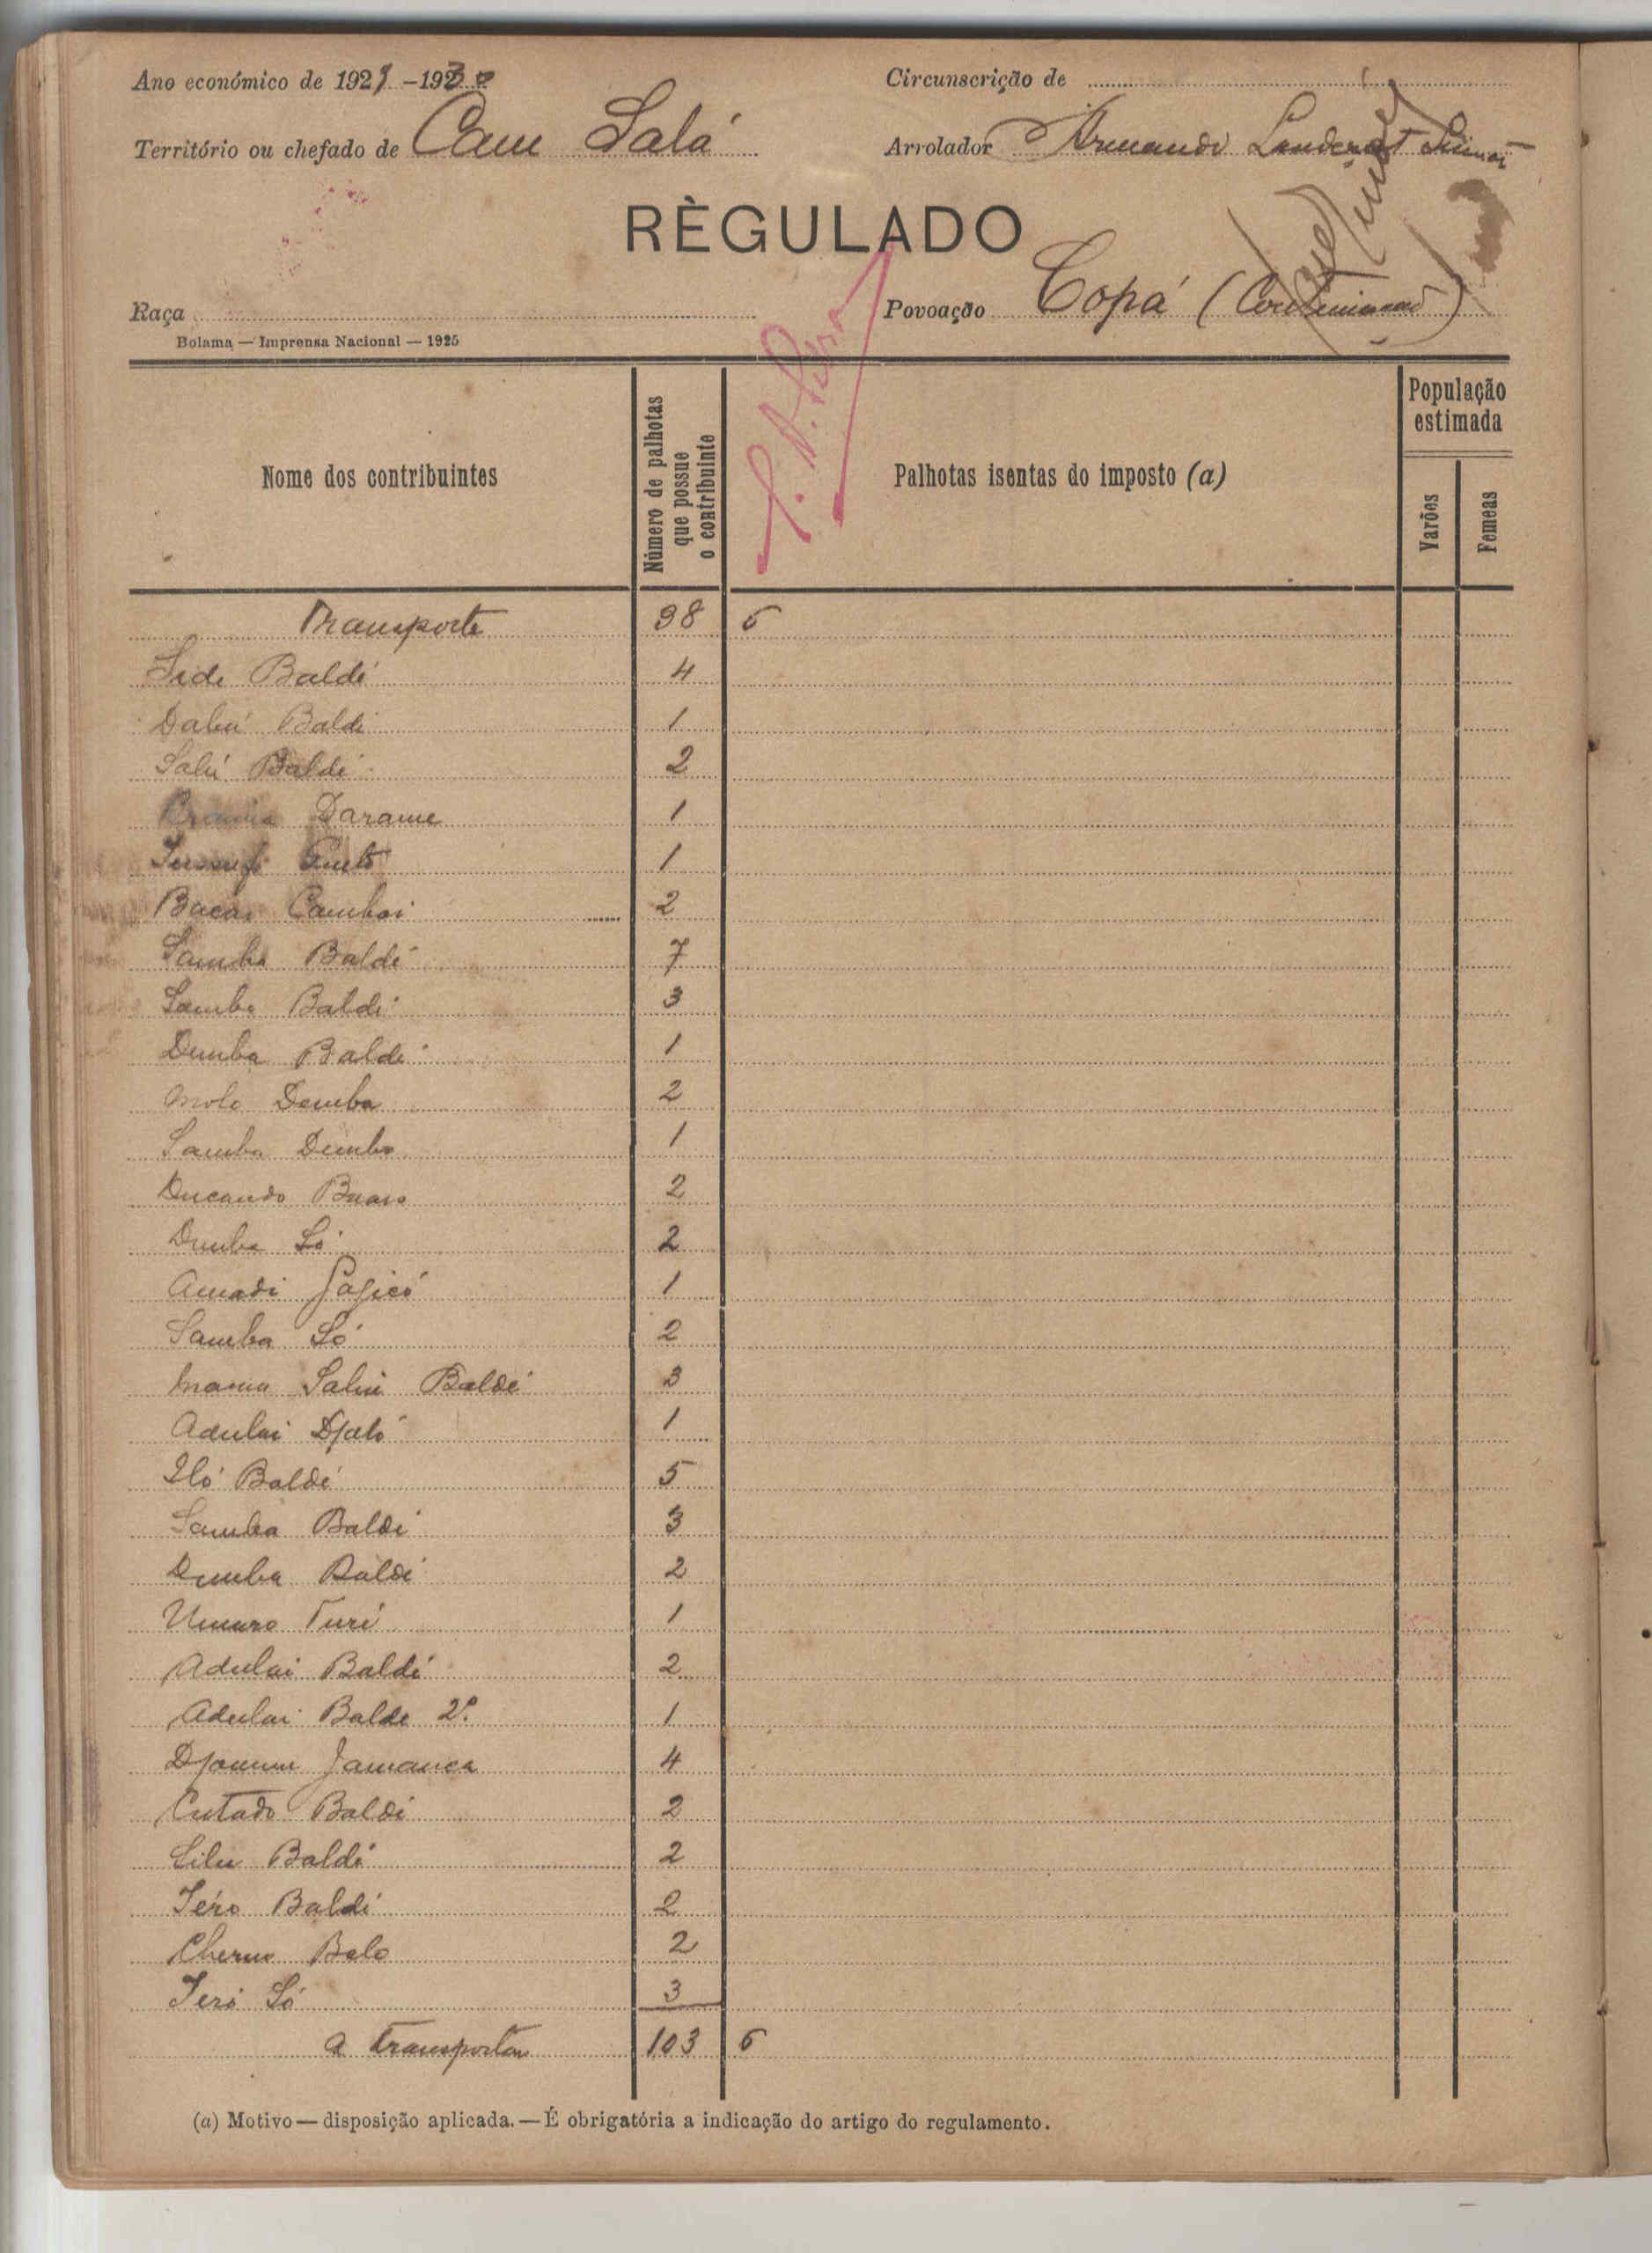 Ano económico de 1929-1930
Circunscrição de
Território ou chefado de Cam Salá
Arrolador Armando
RÈGULADO
Raça
Povoação Copá (Continuação)
Bolama — Imprensa Nacional — 1925
Nome dos contribuintes
Número de palhotas que possue o contribuinte
Palhotas isentas do imposto (a)
População estimada
Varões
Femeas
Transporte 38 6
Side Baldé 4
Dabú Baldé 1
Salú Baldé 2
Darame 1
1
Bacar Cambai 2
Samba Baldé 7
Samba Baldé 3
Demba Baldé 1
Molo Demba 2
Samba Demba 1
2
Demba Só 2
Amadi 1
Samba Só 2
Saliu Baldé 3
Adulai Djaló 1
Iló Baldé 5
Samba Baldé 3
Demba Baldé 2
Umaro Turé 1
Adulai Baldé 2
Adulai Balde 2º 1
Jamanca 4
Cutado Baldé 2
Lilu Baldé 2
Iéro Baldé 2
Cherno Balo 2
Ieró Só 3
A transportar 103 6
(a) Motivo — disposição aplicada. — É obrigatória a indicação do artigo do regulamento.